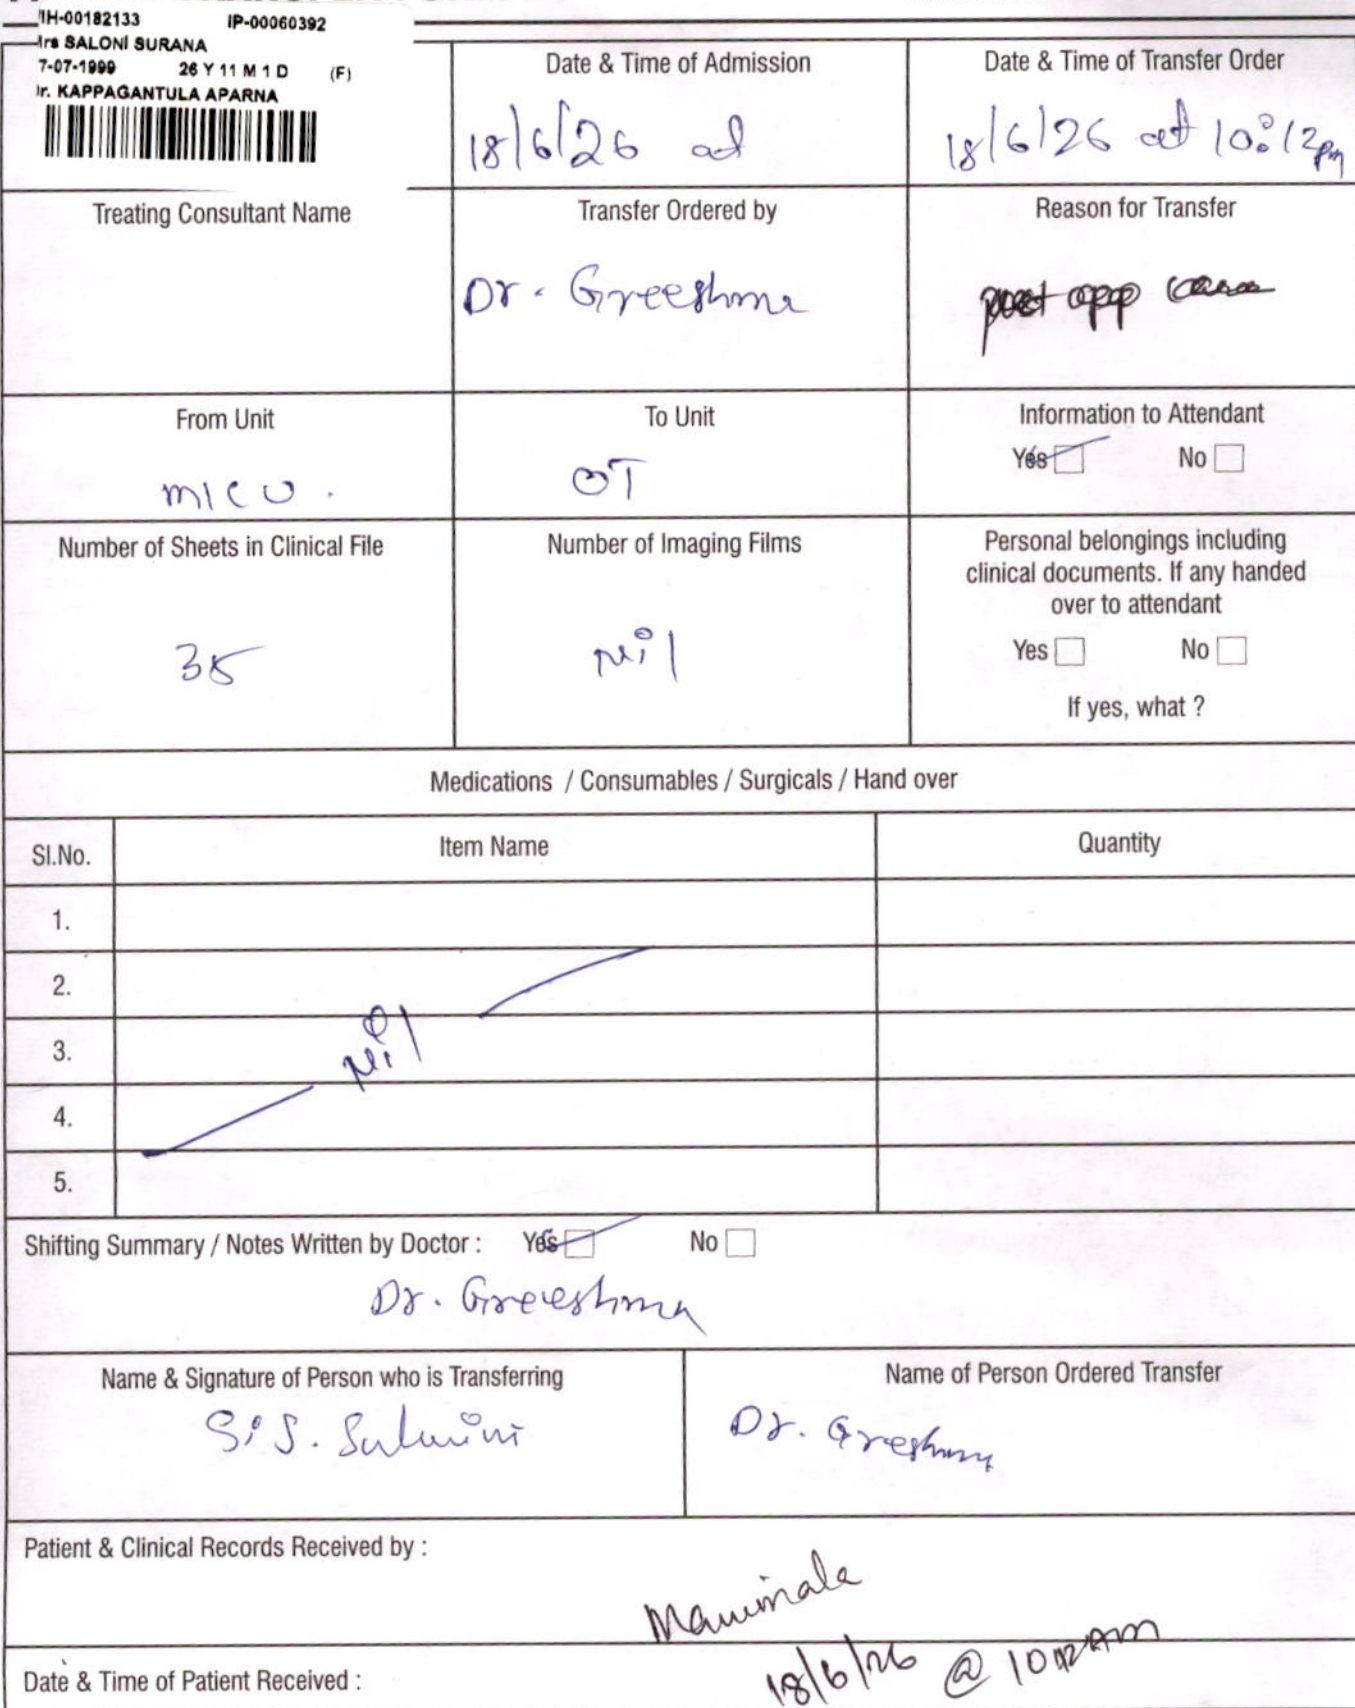 IH-00182133 IP-00060392
Mrs SALONI SURANA
7-07-1999 26 Y 11 M 1 D (F)
Dr. KAPPAGANTULA APARNA
Date & Time of Admission
18/6/26 at
Date & Time of Transfer Order
18/6/26 at 10:12pm
Treating Consultant Name
Transfer Ordered by
Dr. Greeshma
Reason for Transfer
post opp
From Unit
MICU.
To Unit
OT
Information to Attendant
Yes No
Number of Sheets in Clinical File
35
Number of Imaging Films
Nil
Personal belongings including
clinical documents. If any handed
over to attendant
Yes No
If yes, what ?
Medications / Consumables / Surgicals / Hand over
Sl.No. Item Name Quantity
1.
2.
3. Nil
4.
5.
Shifting Summary / Notes Written by Doctor : Yes No
Dr. Greeshma
Name & Signature of Person who is Transferring
Name of Person Ordered Transfer
Dr. Greshma
Patient & Clinical Records Received by :
Date & Time of Patient Received :
18/6/26 @ 10:12AM